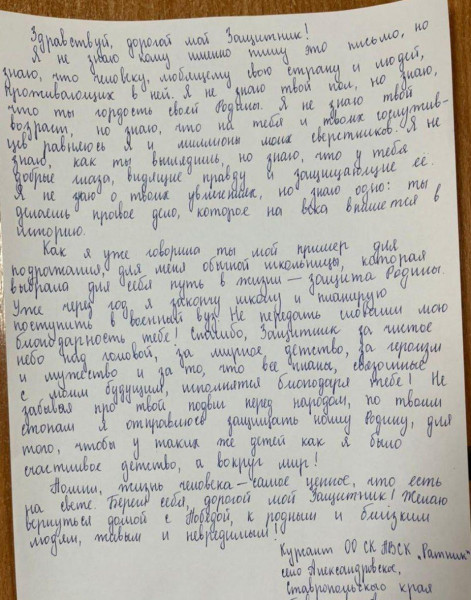 Здравствуй, дорогой мой Защитник!
Я не знаю кому именно пишу это письмо, но
знаю, что человеку, любящему свою страну и людей,
проживающих в ней. Я не знаю твой пол, но знаю,
что ты гордость своей Родины. Я не знаю твой
возраст, но знаю, что на тебя и твоих сослужив-
цев равняюсь я и миллионы моих сверстников. Я не
знаю, как ты выглядишь, но знаю, что у тебя
добрые глаза, видящие правду и защищающие её.
Я не знаю о твоих увлечениях, но знаю одно: ты
делаешь правое дело, которое на века впишется в
историю.
Как я уже говорила ты мой пример для
подражания, для меня обычной школьницы, которая
выбрала для себя путь в жизни — защита Родины.
Уже через год я закончу школу и планирую
поступить в военный вуз. Не передать словами мою
благодарность тебе! Спасибо, Защитник за чистое
небо над головой, за мирное детство, за героизм
и мужество и за то, что все планы, связанные
с моим будущим, исполнятся благодаря тебе! Не
забывая про твой подвиг перед народом, по твоим
стопам я отправлюсь защищать нашу Родину, для
того, чтобы у таких же детей как я было
счастливое детство, а вокруг мир!
Помни, жизнь человека — самое ценное, что есть
на свете. Береги себя, дорогой мой Защитник! Желаю
вернуться домой с Победой, к родным и близким
людям, живым и невредимым!
Курсант ОО СК АВСК „Ратник"
село Александровское,
Ставропольского края